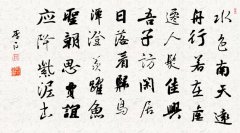 水色南天遠
舟行若在虛
遷人發佳興
吾子訪閑居
日落看歸鳥
潭澄羨躍魚
聖朝思賈誼
應降紫泥書